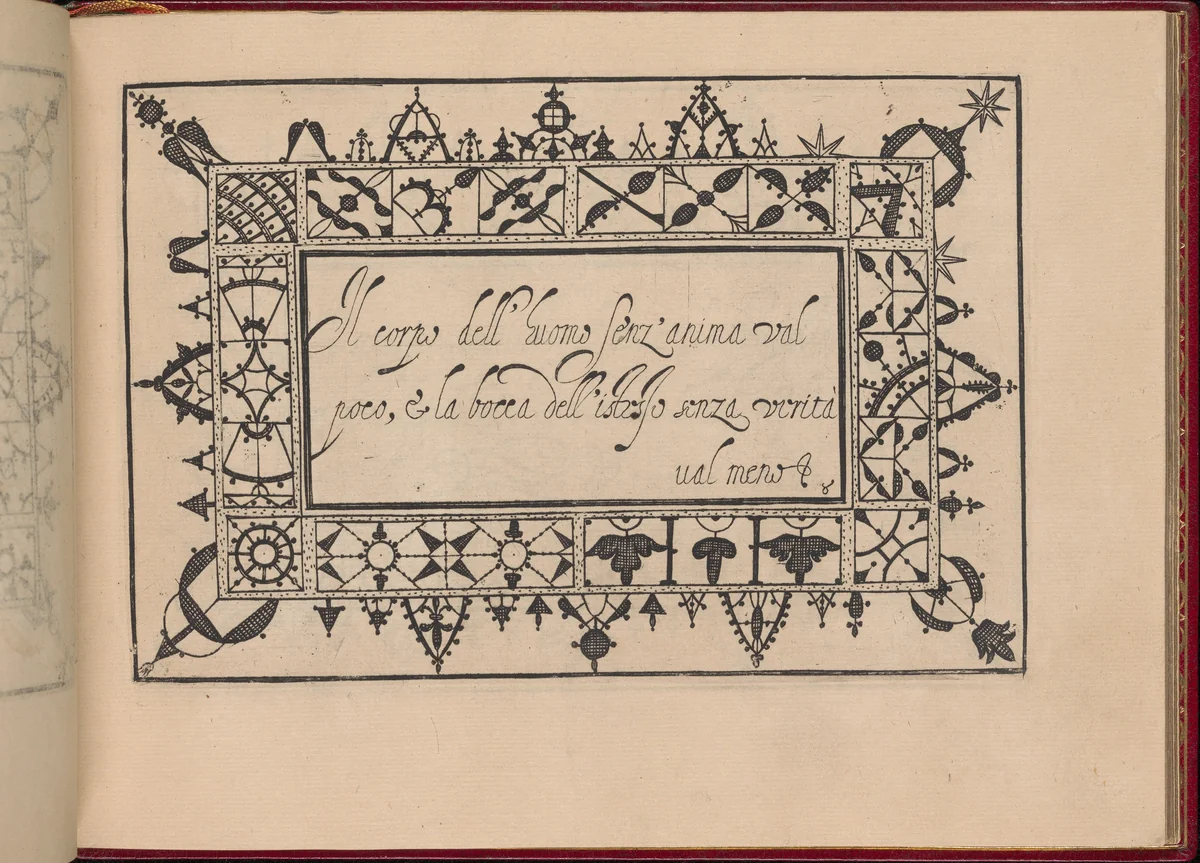 Il corpo dell'huomo senz'anima val
poco, & la bocca dell'istesso senza verità
ual meno